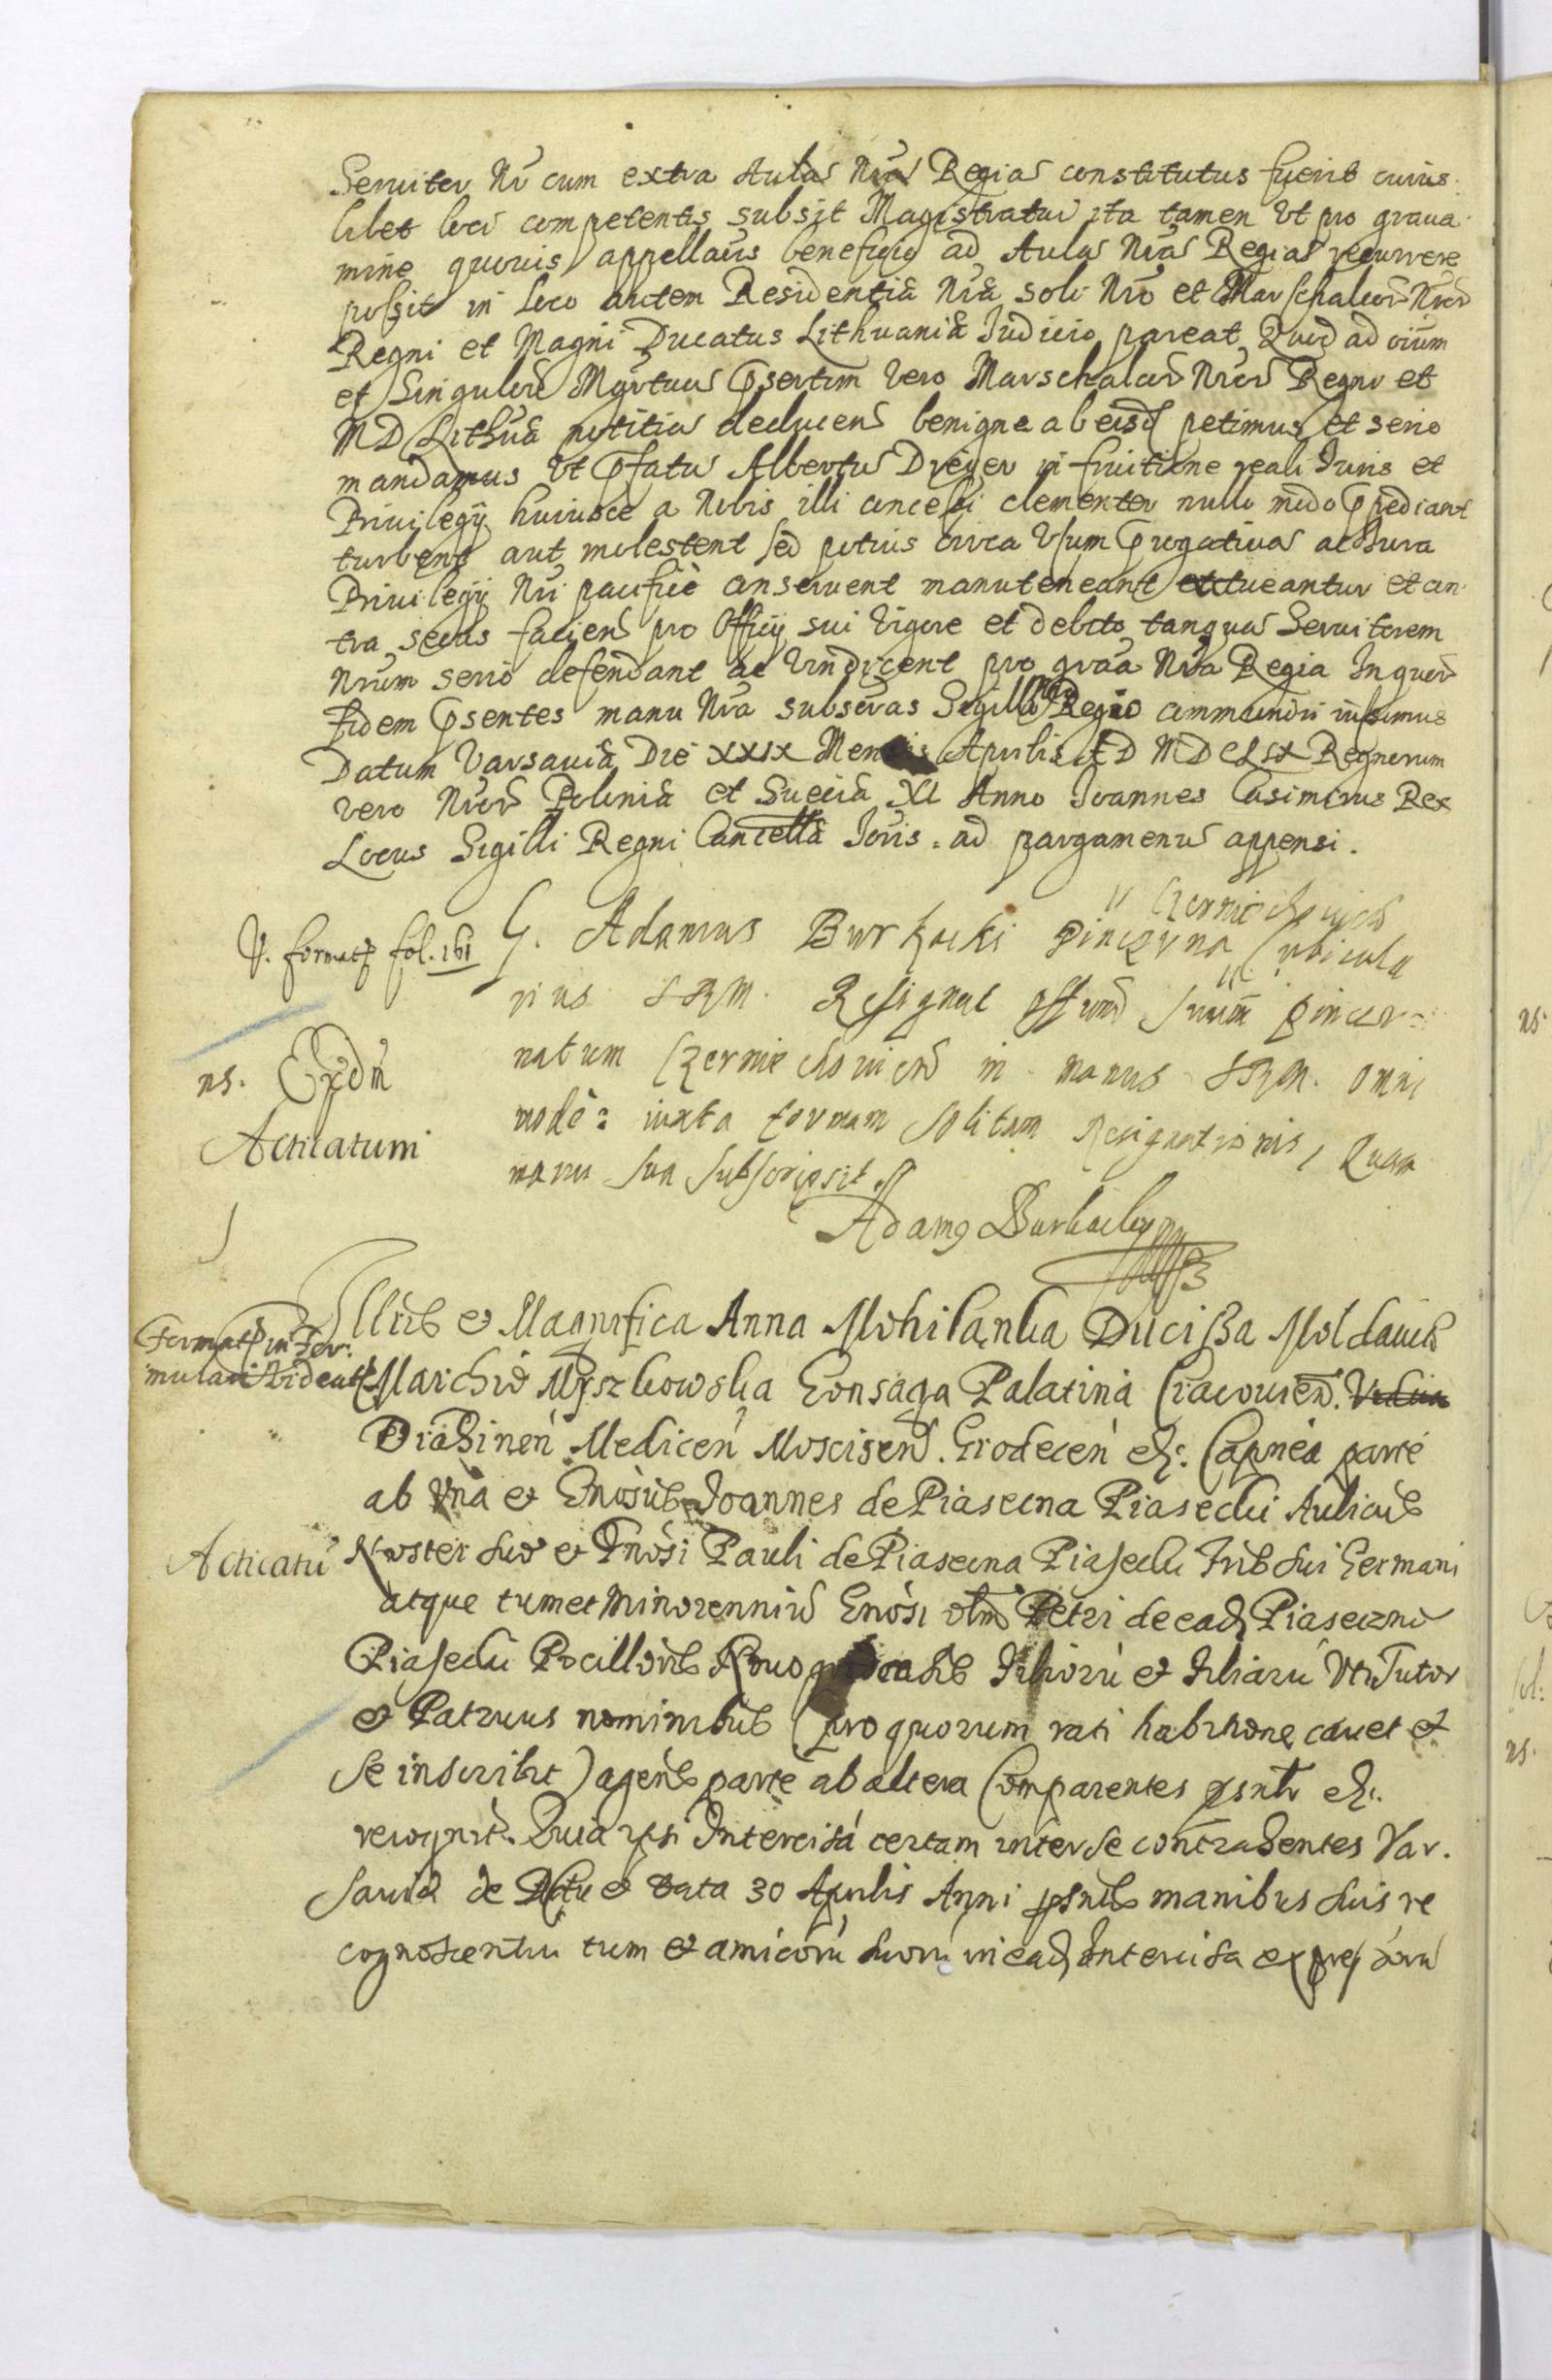 Seruitor Nr̄ cum extra Aulas Nrās Regias constitutus fuerit cuius
libet loci competentis subsit Magistratui ita tamen Vt pro graua
mine quouis appellaōis beneficio ad Aulas Nrās Regias recurrere
possit in loco autem Residentiæ Nræ soli Nro et Marschalcor̄ Nror̄
Regni et Magni Ducatus Lithuaniæ Iudicio pareat, Quod ad oīum
et Singulor̄ notitiam deducens
M D Lithuæ notitiam deducens benigne ab eisd petimus et serio
mandamus Vt pfatū Albertū Dreyer in fruitione reali Iuris et
Priuilegij huiusce a Nobis illi concessi clementer nullo modo
turbent aut molestent sed potius circa Vsum progatiuas ac Iura
Priuilegij Nri pacificè conseruent manuteneant et tueantur et con
tra secus faciens pro Officij sui Vigore et debito tanquā Seruitorem
Nrum serio defendant ac Vindicent pro graā Nra Regia In quor̄
fidem psentes manu Nra subscras Sigillo Regio communiri iussimus
Datum Varsauiæ Die XXIX Mensis Aprilis AD MDCLIX Regnorum
vero Nror̄ Poloniæ et Sueciæ XI Anno Ioannes Casimirus Rex
Locus Sigilli Regni Cancellā Ioris . ad pargamenū appensi .
Czerniechouien
V. format fol. 161
G. Adamus Burkacki Pincerna Cubicula
rius SRM. Resignat offum suum pincer
ns. Expdm
natum Czerniechouien in manus SRM. omni
modè: iuxta formam solitam Resignationis, Quam
Acticatum
manu sua subscripsit
Adamg Burkacky
Illris et Magnifica Anna Mohilanka Ducißa Moldauiæ
Format in For
mulari Videat
Marchio Myszkowska Gonsaga Palatina Cracouien.
Drahinen Medicen Moscisen. Grodecen etc. Capnea parte
ab Vna et Gnosus Ioannes de Piaseczna Piasecki Aulicus
Acticatū
Noster suo et Gnosi Pauli de Piaseczna Piasecki Fris sui Germani
atque tum et minorenniū Gnosi olim Petri de ead Piaseczno
Piasecki Pocilloris filiorū et filiarū Vti Tutor
et Patruus nominibus (pro quorum rati habitione cauet et
se inscribit) agens parte ab altera Comparentes psntr etc.
recognt. Quia ipsi Intercisa certam inter se contrahentes Var.
sauiæ de Actu et Data 30 Aprilis Anni psntis manibus suis re
cognoscentiu tum et amicorū suorū in ead Intercisa expressorū